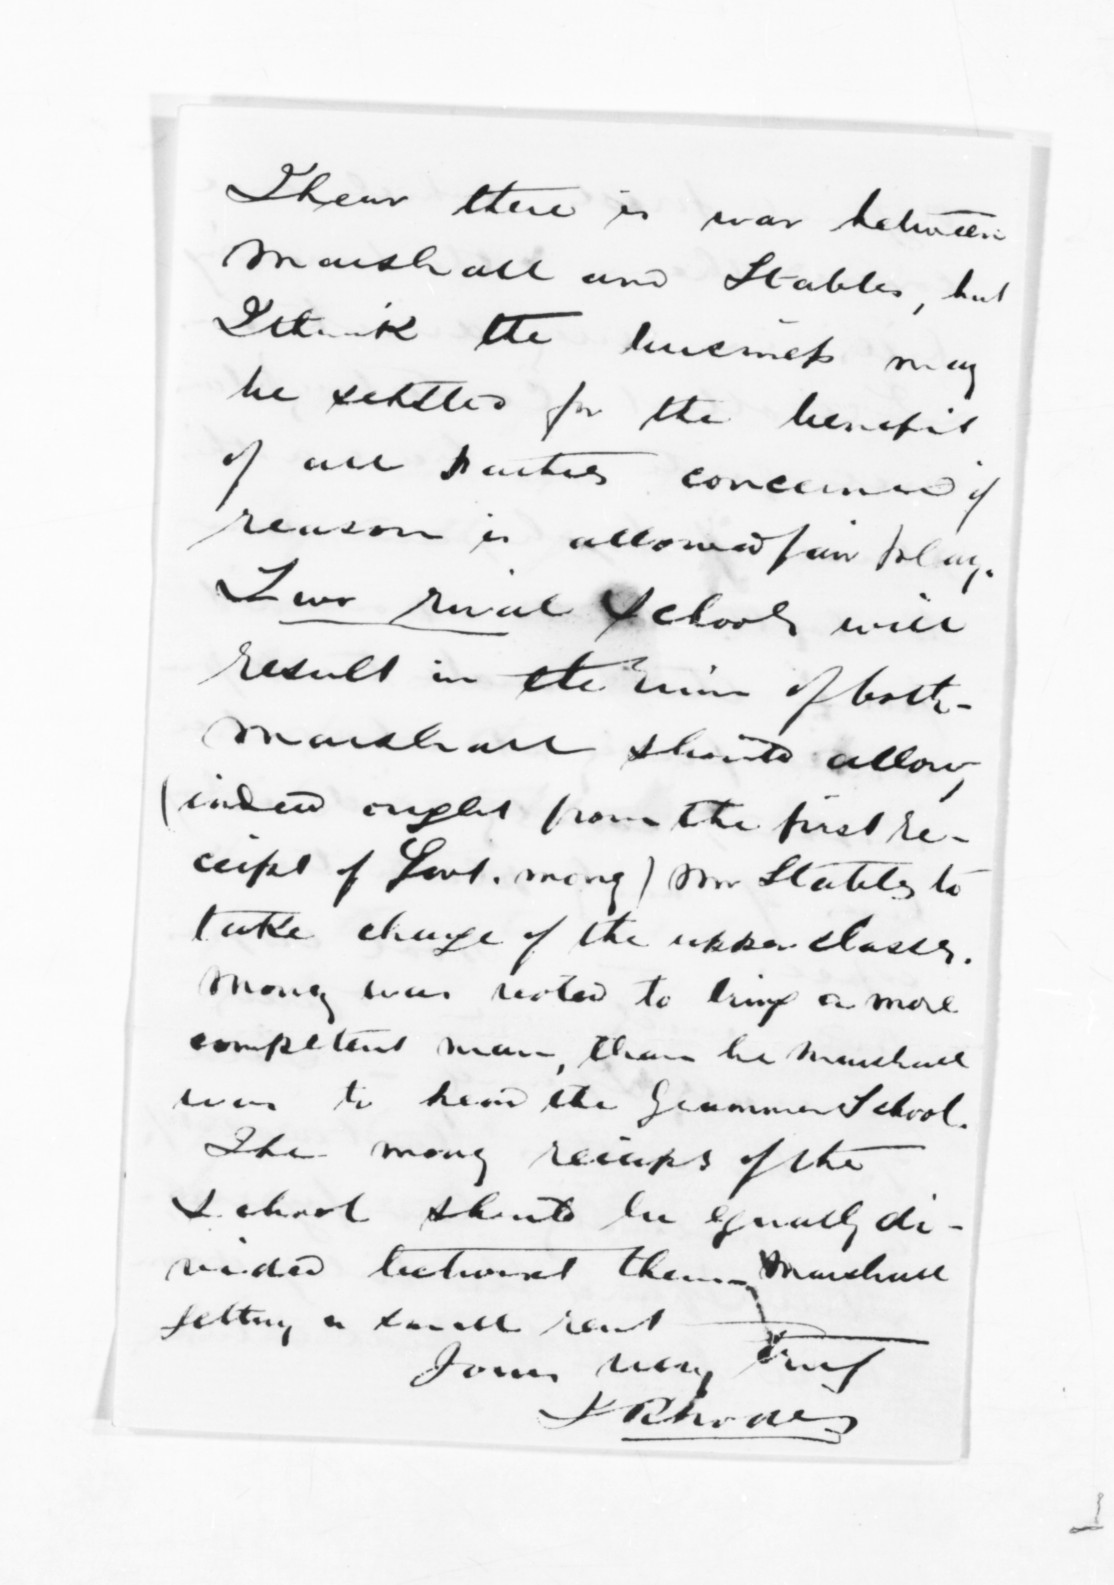 I hear there is war between
Marshall and Stables, but
I think the business may
be settled for the benefit
of all parties concerned if
reason is allowed fair play.
Two rival schools will
result in the ruin of both -
Marshall should allow,
(indeed ought from the first re-
ceipt of Govt. money) Mr Stables to
take charge of the upper classes.
Money was voted to bring a more
competent man, than he Marshall
was to head the Grammer School.
The money receipts of the
School should be equally di-
vided betwixt them - Marshall
getting a small rent
Yours very truly
J Rhodes
1